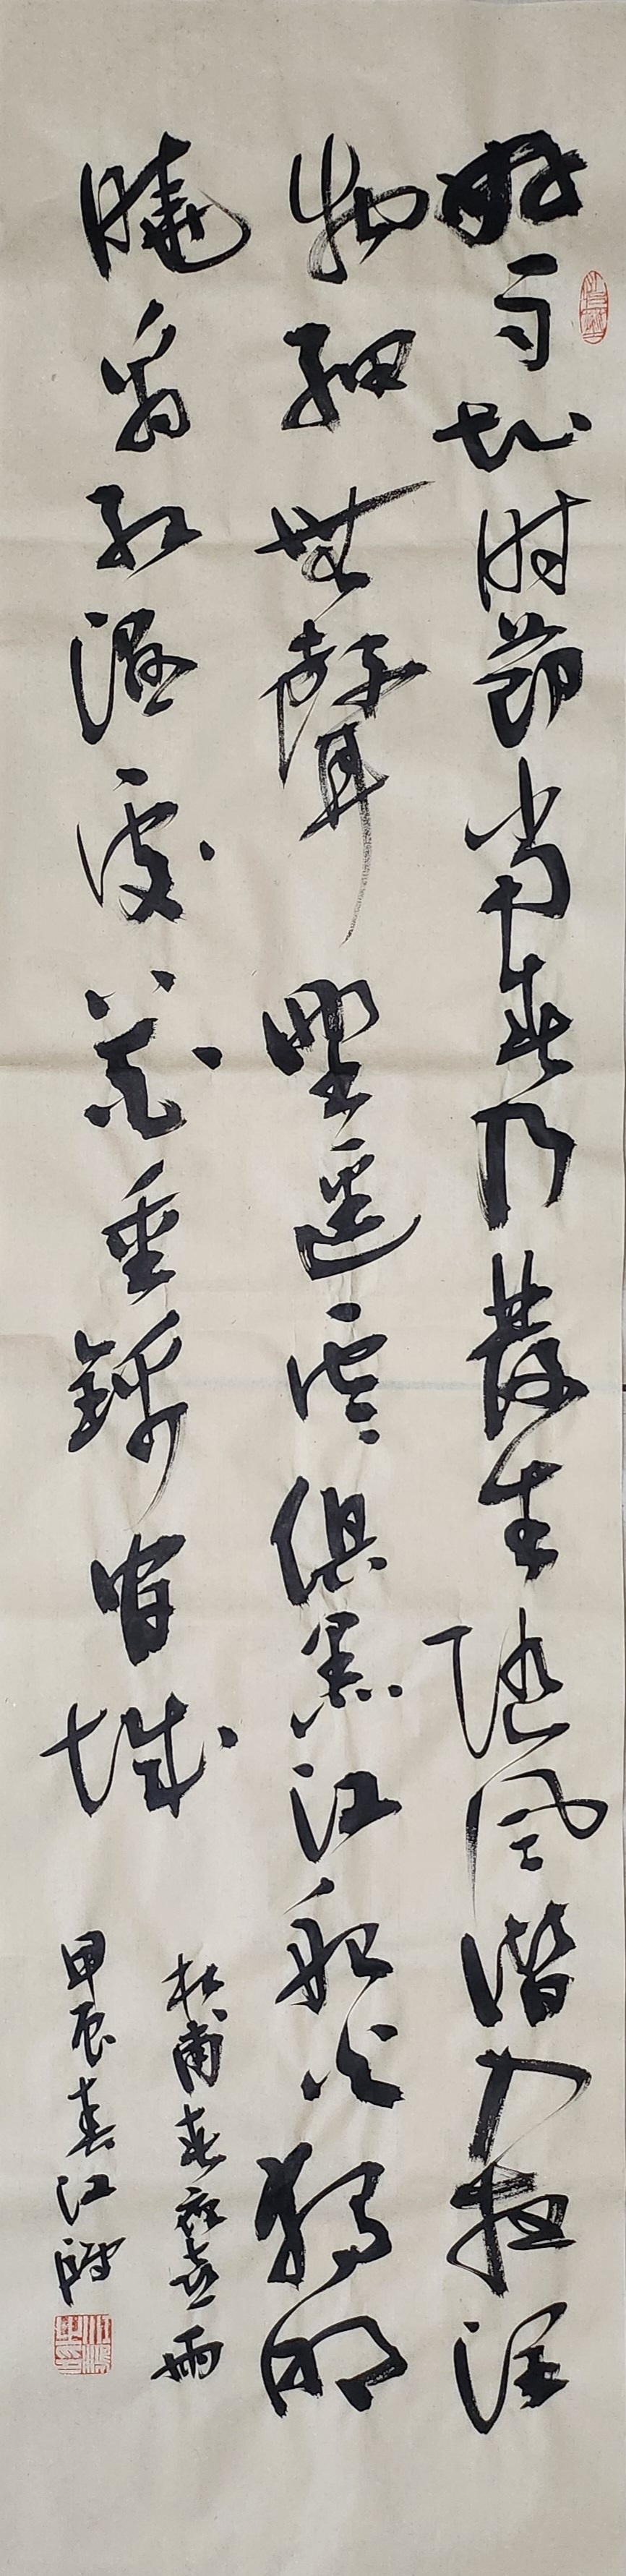 好雨知时節当春乃發生随風潜入夜润
物細無聲野逕雲俱黑江船火獨明
曉看紅濕處花重錦官城
杜甫春夜喜雨
甲辰春江